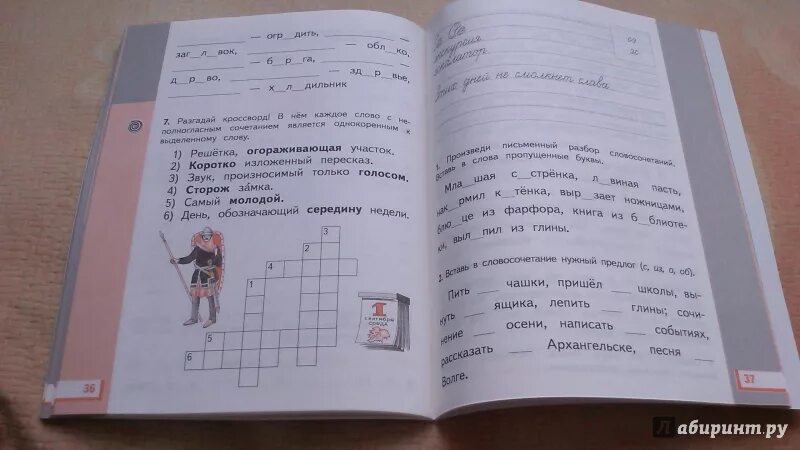 — огр__дить, —
заг__л__вок, — обл__ко,
— б__р__га, —
д__р__во, — зд__р__вье,
— х__л__дильник
7. Разгадай кроссворд! В нём каждое слово с не-
полногласным сочетанием является однокоренным к
выделенному слову.
1) Решётка, огораживающая участок.
2) Коротко изложенный пересказ.
3) Звук, произносимый только голосом.
4) Сторож за́мка.
5) Самый молодой.
6) День, обозначающий середину недели.
3
2
4
1
5
6
1
сентября
среда
36
экскурсия
Этих дней не смолкнет слава
1. Произведи письменный разбор словосочетаний.
Вставь в слова пропущенные буквы.
Мла__шая с__стрёнка, л__виная пасть,
нак__рмил к__тёнка, выр__зает ножницами,
блю__це из фарфора, книга из б__блиоте-
ки, выл__пил из глины.
2. Вставь в словосочетание нужный предлог (с, из, о, об).
Пить __ чашки, пришёл __ школы, вы-
нуть __ ящика, лепить __ глины; сочи-
нение __ осени, написать __ событиях,
рассказать __ Архангельске, песня __
Волге.
37
Лабиринт.ру